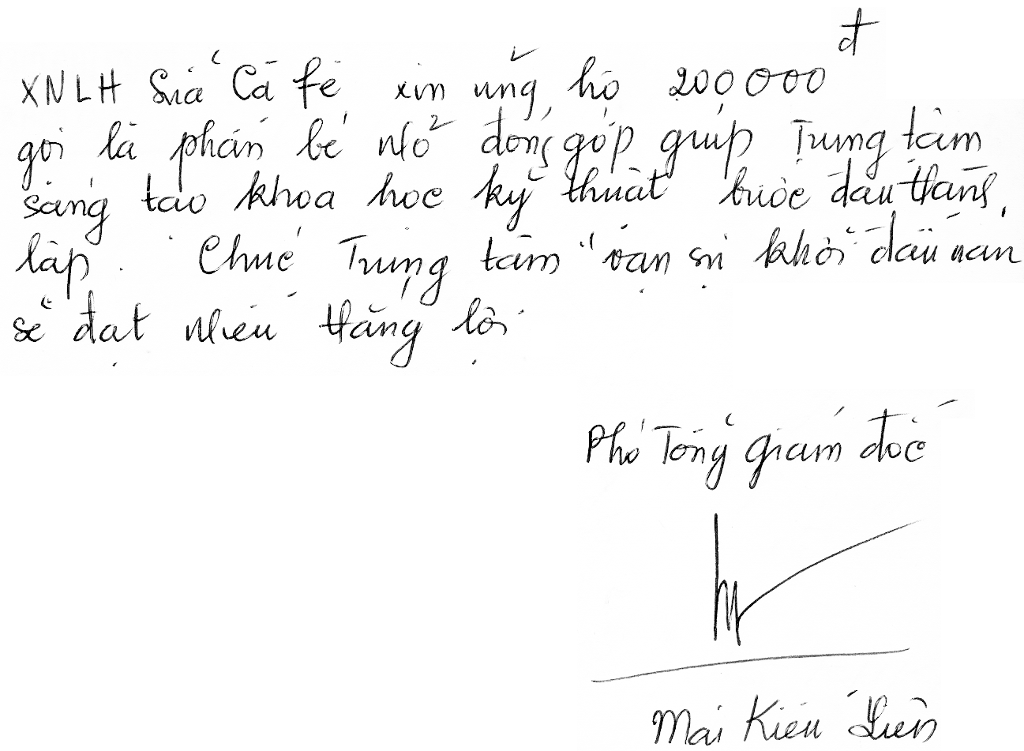 XNLH Sữa Cà fê xin ủng hộ 200 000đ
gọi là phần bé nhỏ đóng góp giúp Trung tâm
sáng tạo khoa học kỹ thuật bước đầu thành
lập. Chúc Trung tâm "vạn sự khởi đầu nan
sẽ đạt nhiều thắng lợi
Phó Tổng giám đốc
Mai Kiều Liên